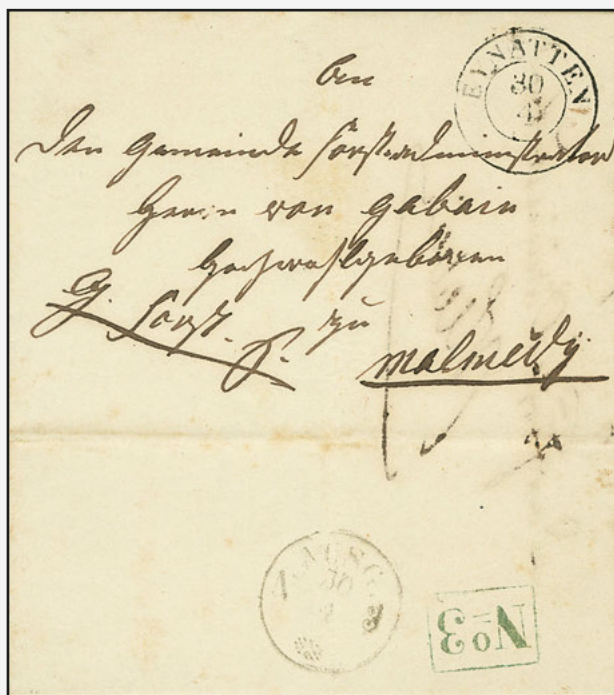 EYNATTEN
30
4
An
Den Gemeinde Forstadministrator
Herrn von Gabain
Hochwohlgeboren
G. Forst. S. zu
Malmedy
AUSG
30
No 3